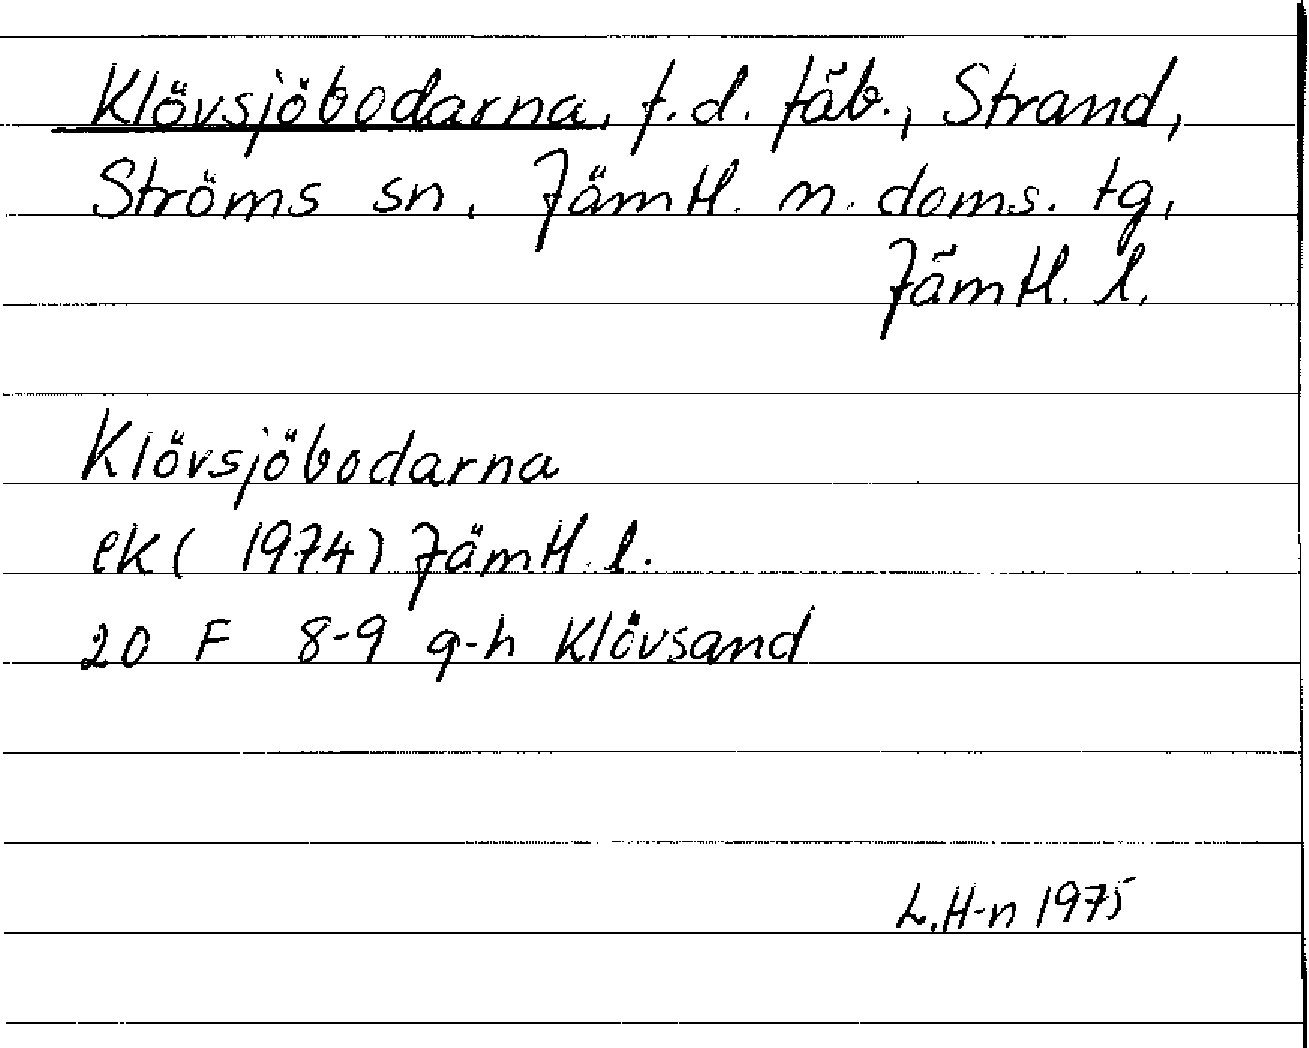 Klövsjöbodarna, f.d. fäb., Strand,
Ströms sn, Jämtl. n. doms. tg,
Jämtl. l.
Klövsjöbodarna
ek( 1974) Jämtl. l.
20 F 8-9 g-h Klövsand
L.H-n 1975